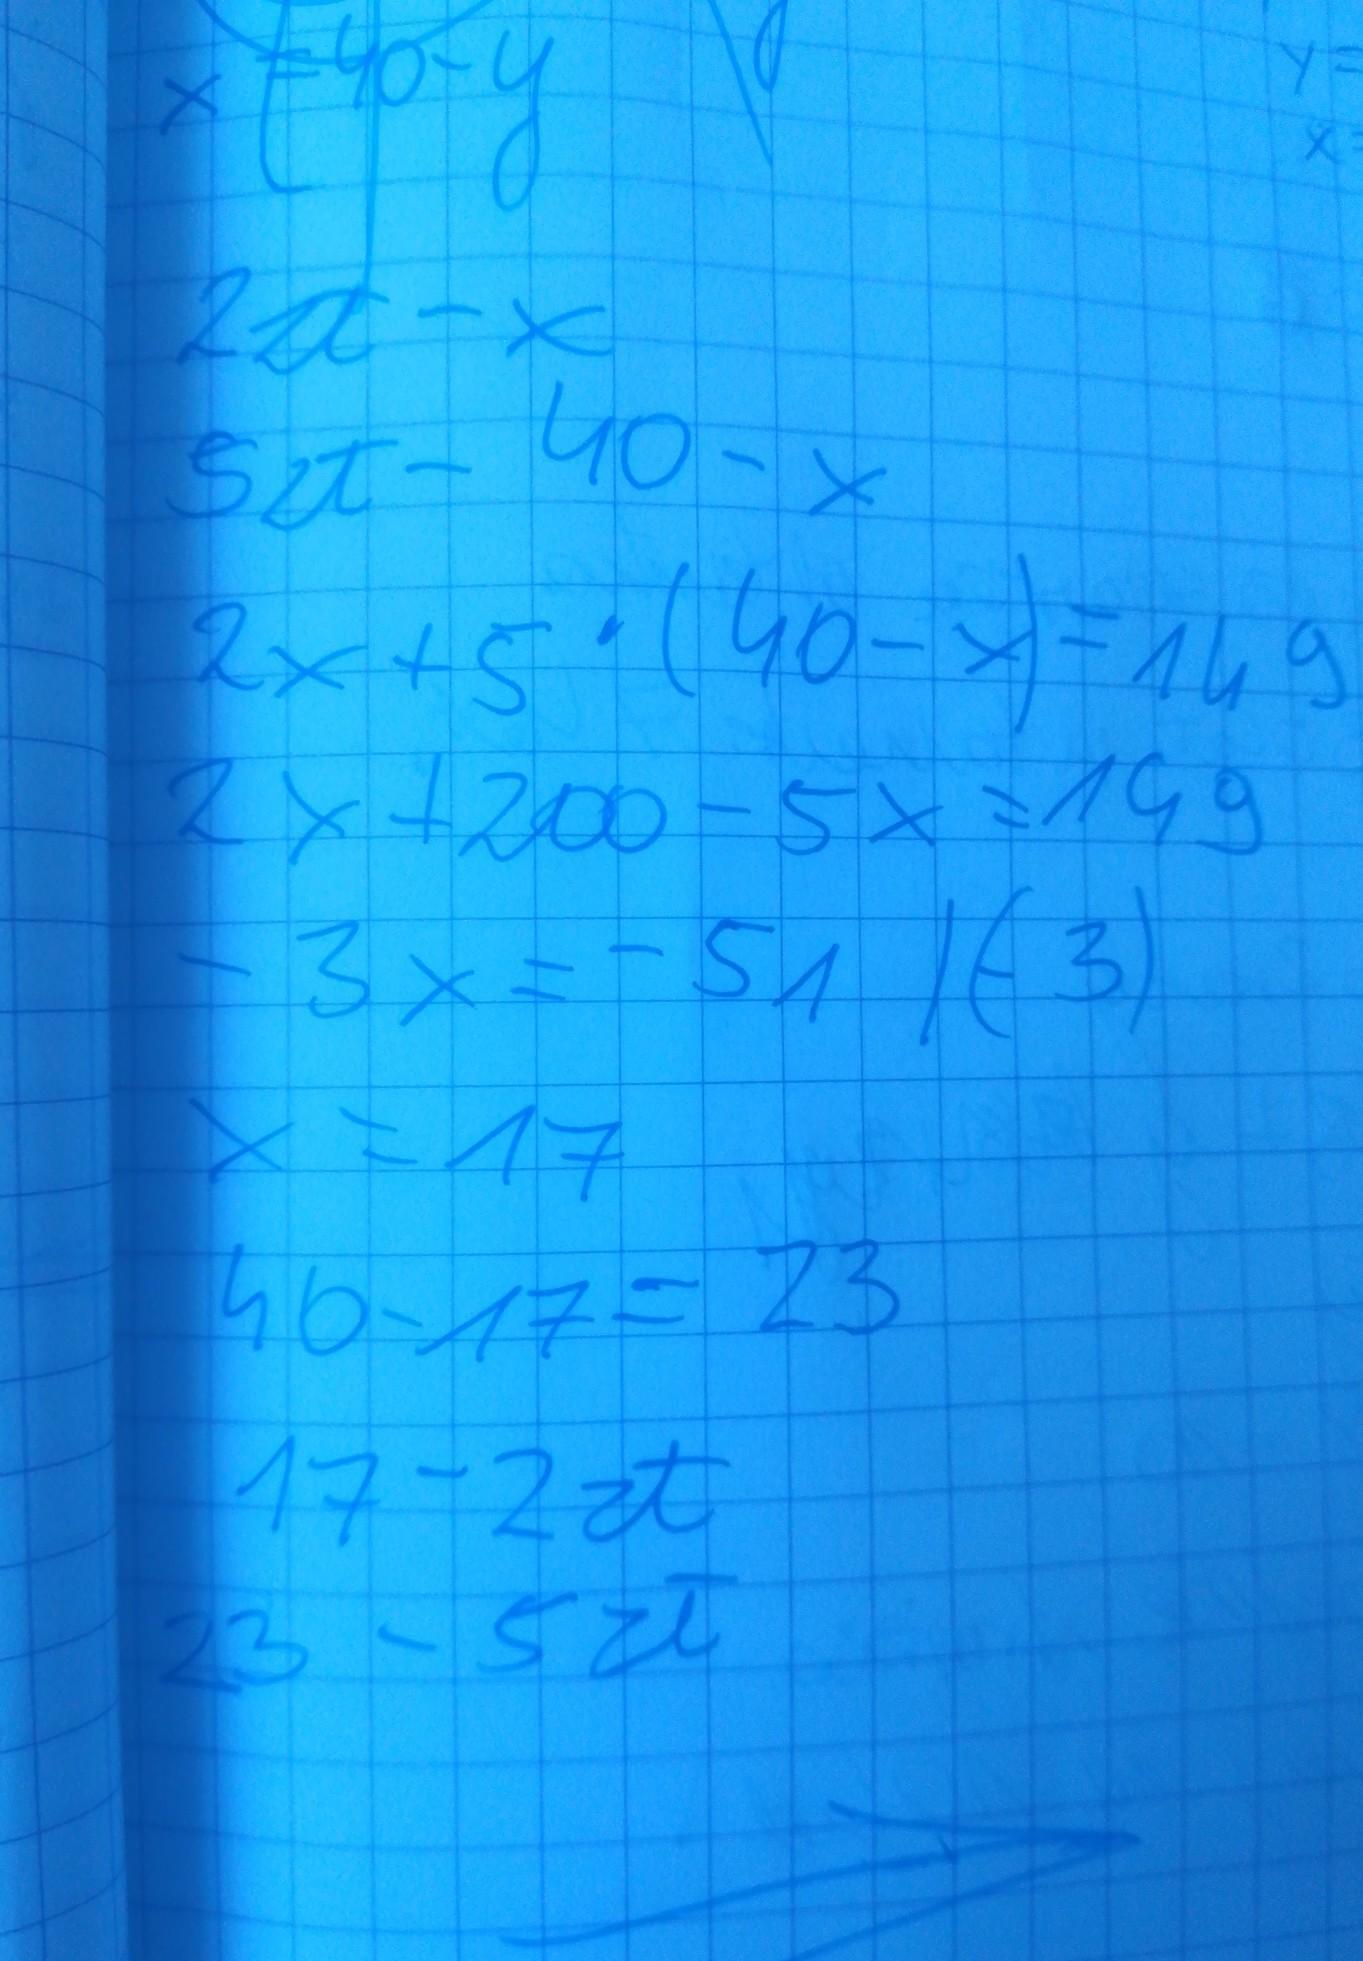 y=
x = 40-y
x=
2zł - x
5zł - 40 - x
2x+5·(40-x)=149
2x+200-5x=149
-3x=-51 /(-3)
x = 17
40-17= 23
17-2zł
23 - 5zł